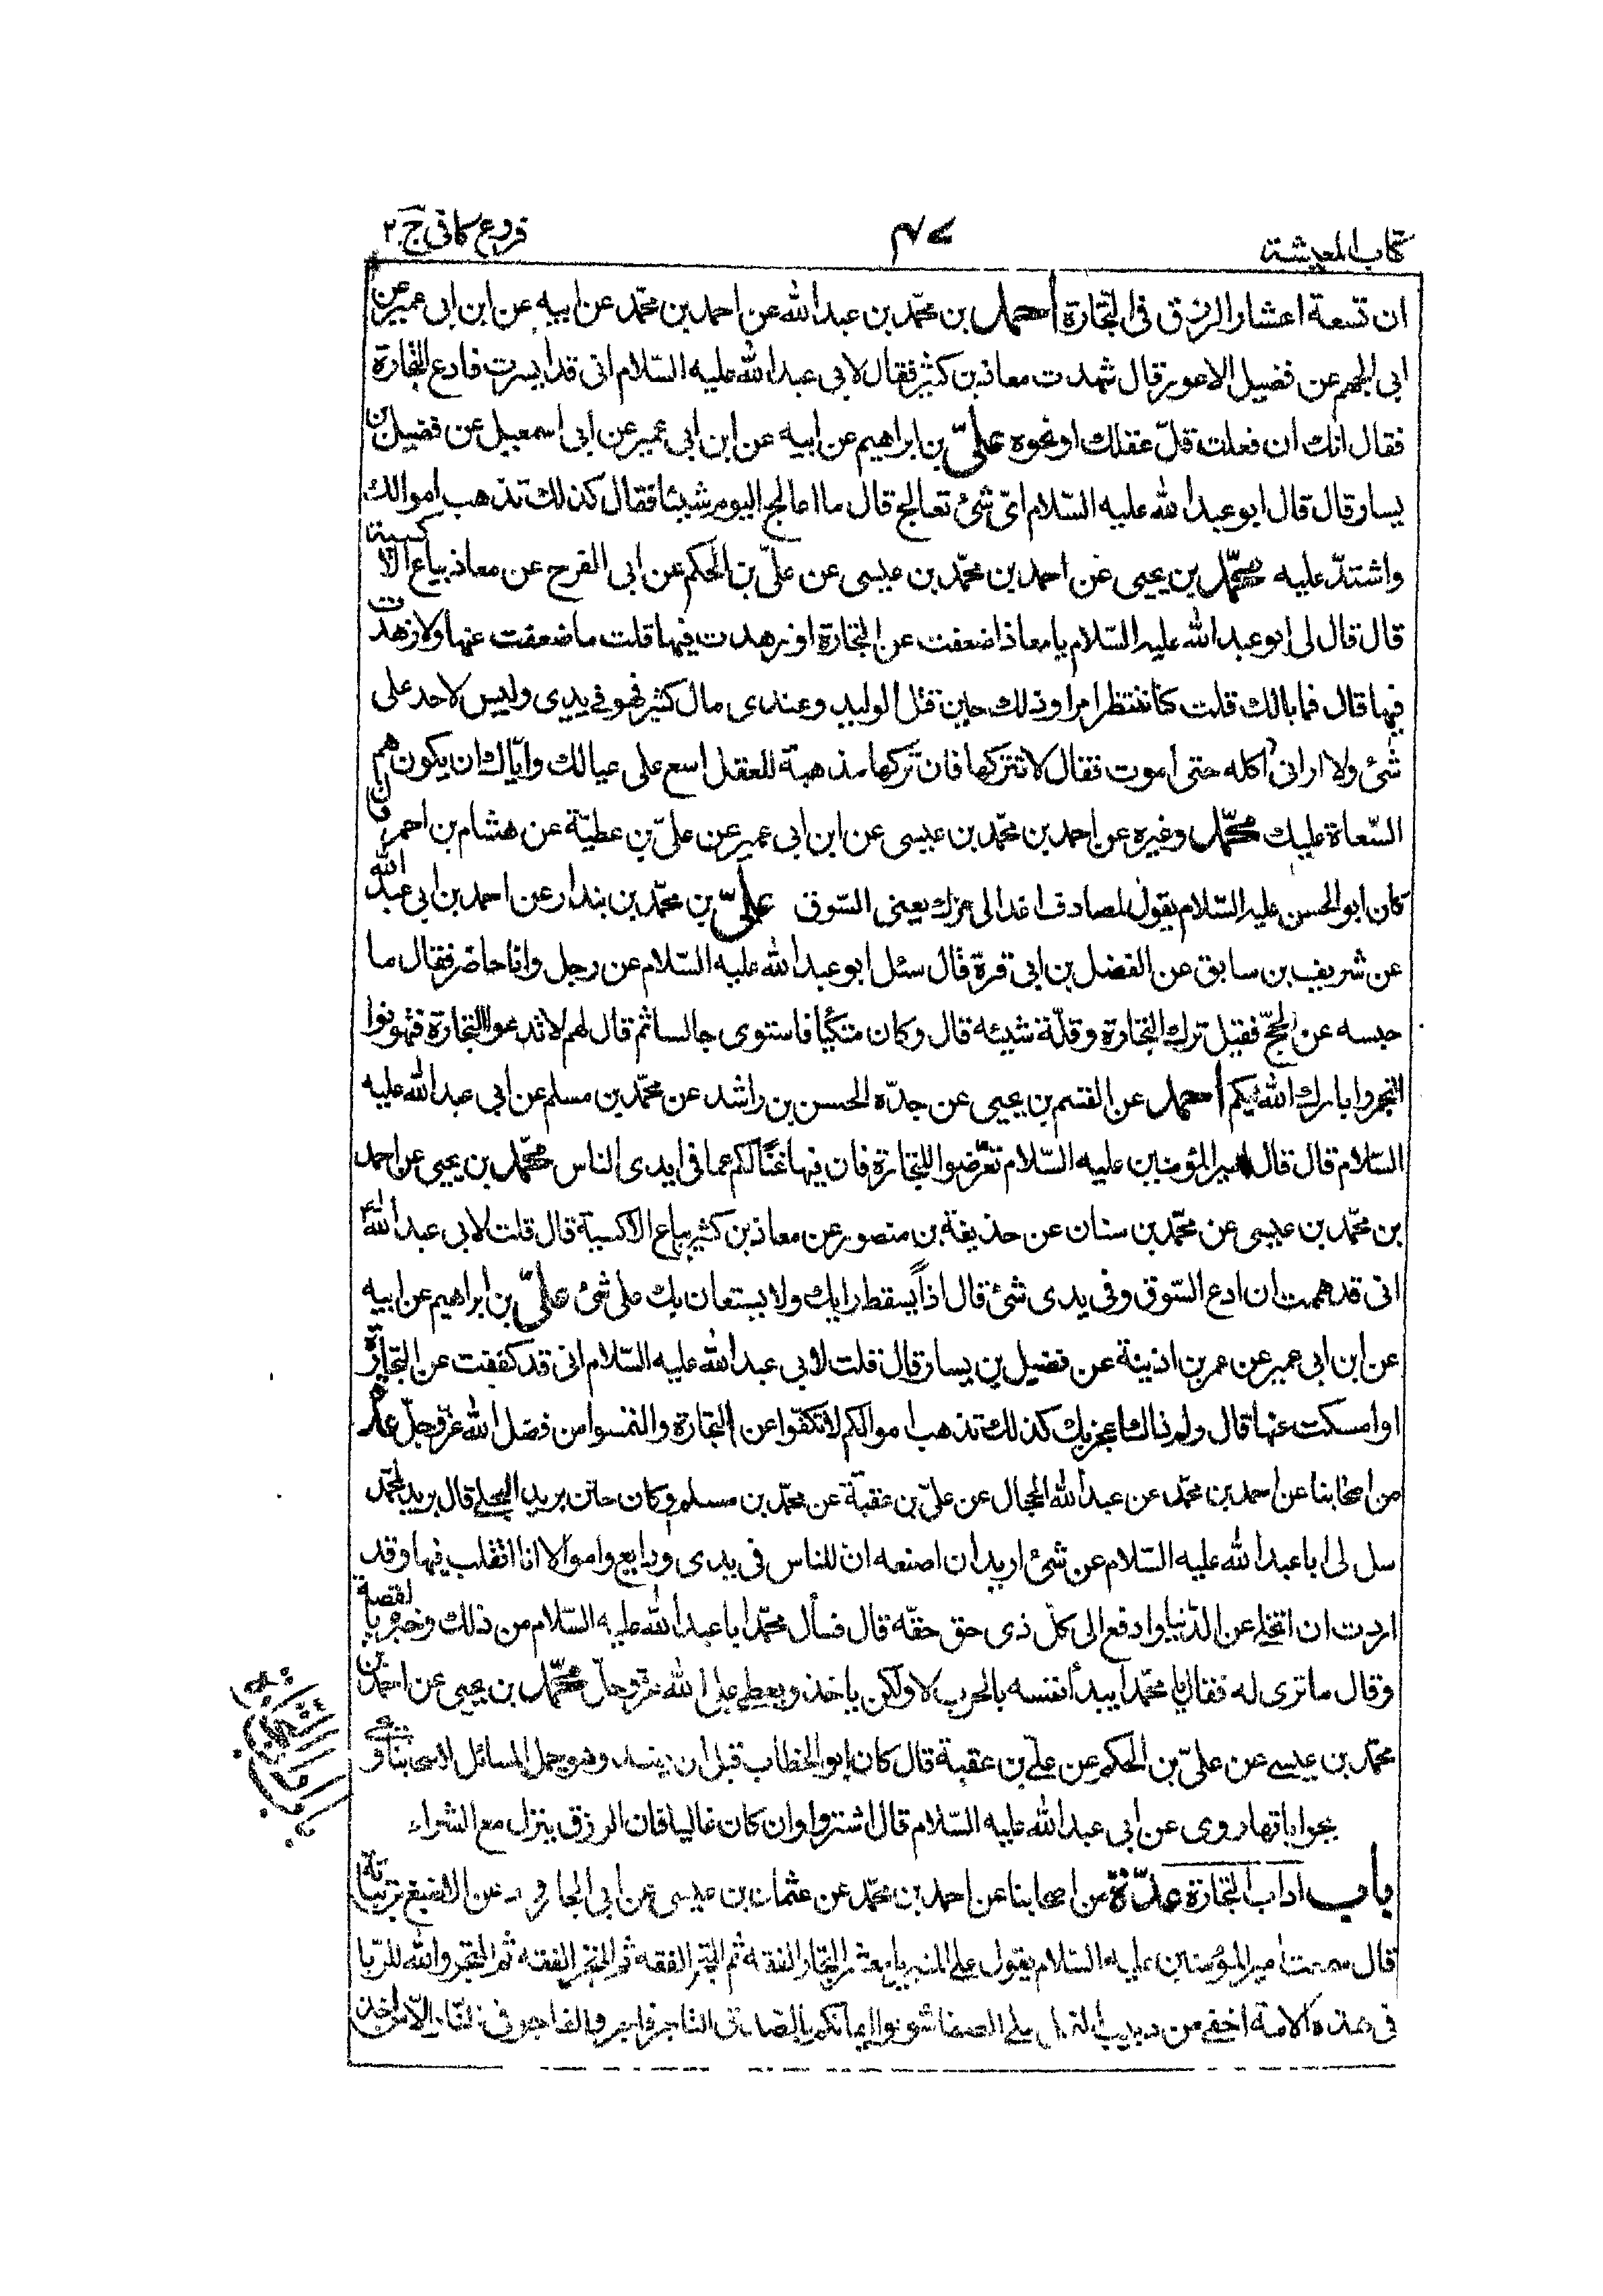 كتاب المعيشة
فروع كافى ج ٢
ان تسعة اعشار الرزق فى التجارة احمد بن محمّد بن عبد الله عن احمد بن محمّد عن ابيه عن ابن ابى عمير عن
ابى الجهم عن فضيل الاعور قال شهدت معاذ بن كثير فقال لابى عبد الله عليه السّلام انى قد ايسرت فادع التجارة
فقال انك ان فعلت قلّ عقلك او نحوه علىّ بن ابراهيم عن ابيه عن ابن ابى عمير عن ابى اسمعيل عن فضيل بن
يسار قال قال ابو عبد الله عليه السّلام اىّ شئ تعالج قال ما اعالج اليوم شيئا فقال كذلك تذهب اموالكم
واشتدّ عليه محمّد بن يحيى عن احمد بن محمّد بن عيسى عن علىّ بن الحكم عن ابى الفرج عن معاذ بياع الاكسية
قال قال لى ابو عبد الله عليه السّلام يا معاذ اضعفت عن التجارة او زهدت فيها قلت ما ضعفت عنها ولا زهدت
فيها قال فما بالك قلت كنا ننتظر امرا وذلك حين قتل الوليد وعندى مال كثير فهو فى يدى وليس لاحد على
شئ ولا ارانى آكله حتى اموت فقال لا تتركها فان تركها مذهبة للعقل اسع على عيالك وايّاك ان يكون هم
السّعاة عليك محمّد وغيره عن احمد بن محمّد بن عيسى عن ابن ابى عمير عن علىّ بن عطيّة عن هشام بن احمر قال
كان ابو الحسن عليه السّلام يقول لمصادف اغد الى عزك يعنى السّوق علىّ بن محمّد بن بندار عن احمد بن ابى عبد الله
عن شريف بن سابق عن الفضل بن ابى قرة قال سئل ابو عبد الله عليه السّلام عن رجل وانا حاضر فقال ما
حبسه عن الحجّ فقيل ترك التجارة وقلّة شيئه قال وكان متكيا فاستوى جالسا ثم قال لهم لا تدعوا التجارة فتهونوا
اتجروا بارك الله لكم احمد عن القسم بن يحيى عن جدّه الحسن بن راشد عن محمّد بن مسلم عن ابى عبد الله عليه
السّلام قال قال امير المؤمنين عليه السّلام تعرّضوا للتجارة فان فيها غنًا لكم عما فى ايدى الناس محمّد بن يحيى عن احمد
بن محمّد بن عيسى عن محمّد بن سنان عن حذيفة بن منصور عن معاذ بن كثير بياع الاكسية قال قلت لابى عبد الله ع
انى قد هممت ان ادع السّوق وفى يدى شئ قال اذاً يسقط رايك ولا يستعان بك على شئ علىّ بن ابراهيم عن ابيه
عن ابن ابى عمير عن عمر بن اذينة عن فضيل بن يسار قال قلت لابى عبد الله عليه السّلام انى قد كففت عن التجارة
او امسكت عنها قال ولم ذلك اعجز بك كذلك تذهب اموالكم لا تكفّوا عن التجارة والتمسوا من فضل الله عزّ وجلّ عدة
من اصحابنا عن احمد بن محمّد عن عبد الله الحجال عن علىّ بن عقبة عن محمّد بن مسلم وكان ختن بريد العجلى قال بريد لمحمّد
سل لى ابا عبد الله عليه السّلام عن شئ اريد ان اصنعه ان للناس فى يدى ودايع واموالا انا اتقلب فيها وقد
اردت ان اتخلى عن الدّنيا وادفع الى كلّ ذى حق حقّه قال فسأل محمّد ابا عبد الله عليه السّلام من ذلك وخبره بالقصة
وقال ما ترى له فقال يا محمّد ايبدأ نفسه بالحرب لا ولكن ياخذ ويعطى على الله عزّ وجلّ محمّد بن يحيى عن احمد بن
محمّد بن عيسى عن علىّ بن الحكم عن علىّ بن عقبة قال كان ابو الخطاب قبل ان يفسد وهو يحمل المسائل لاصحابنا ويجئ
بجواباتها روى عن ابى عبد الله عليه السّلام قال اشتروا وان كان غاليا فان الرزق ينزل مع الشراء
باب اداب التجارة عدّة من اصحابنا عن احمد بن محمّد عن عثمان بن عيسى عن ابى الجارود عن الاصبغ بن نباتة
قال سمعت امير المؤمنين عليه السّلام يقول على المنبر يا معشر التجار الفقه ثم المتجر الفقه ثم المتجر الفقه ثم المتجر والله للرّبا
فى هذه الامة اخفى من دبيب النمل على الصفا شوبوا ايمانكم بالصدق التاجر فاجر والفاجر فى النار الّا من اخذ